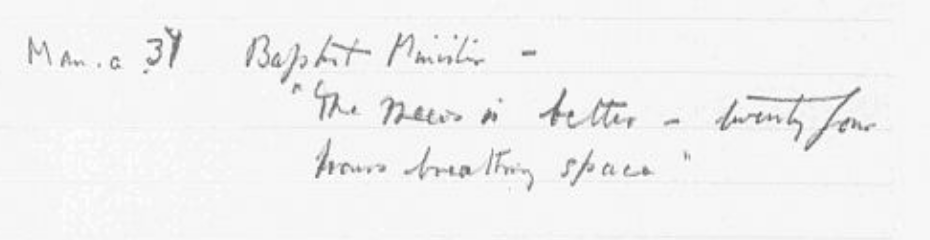 Man. a 37 Baptist Minister -
"The news is better - twenty four
hours breathing space"